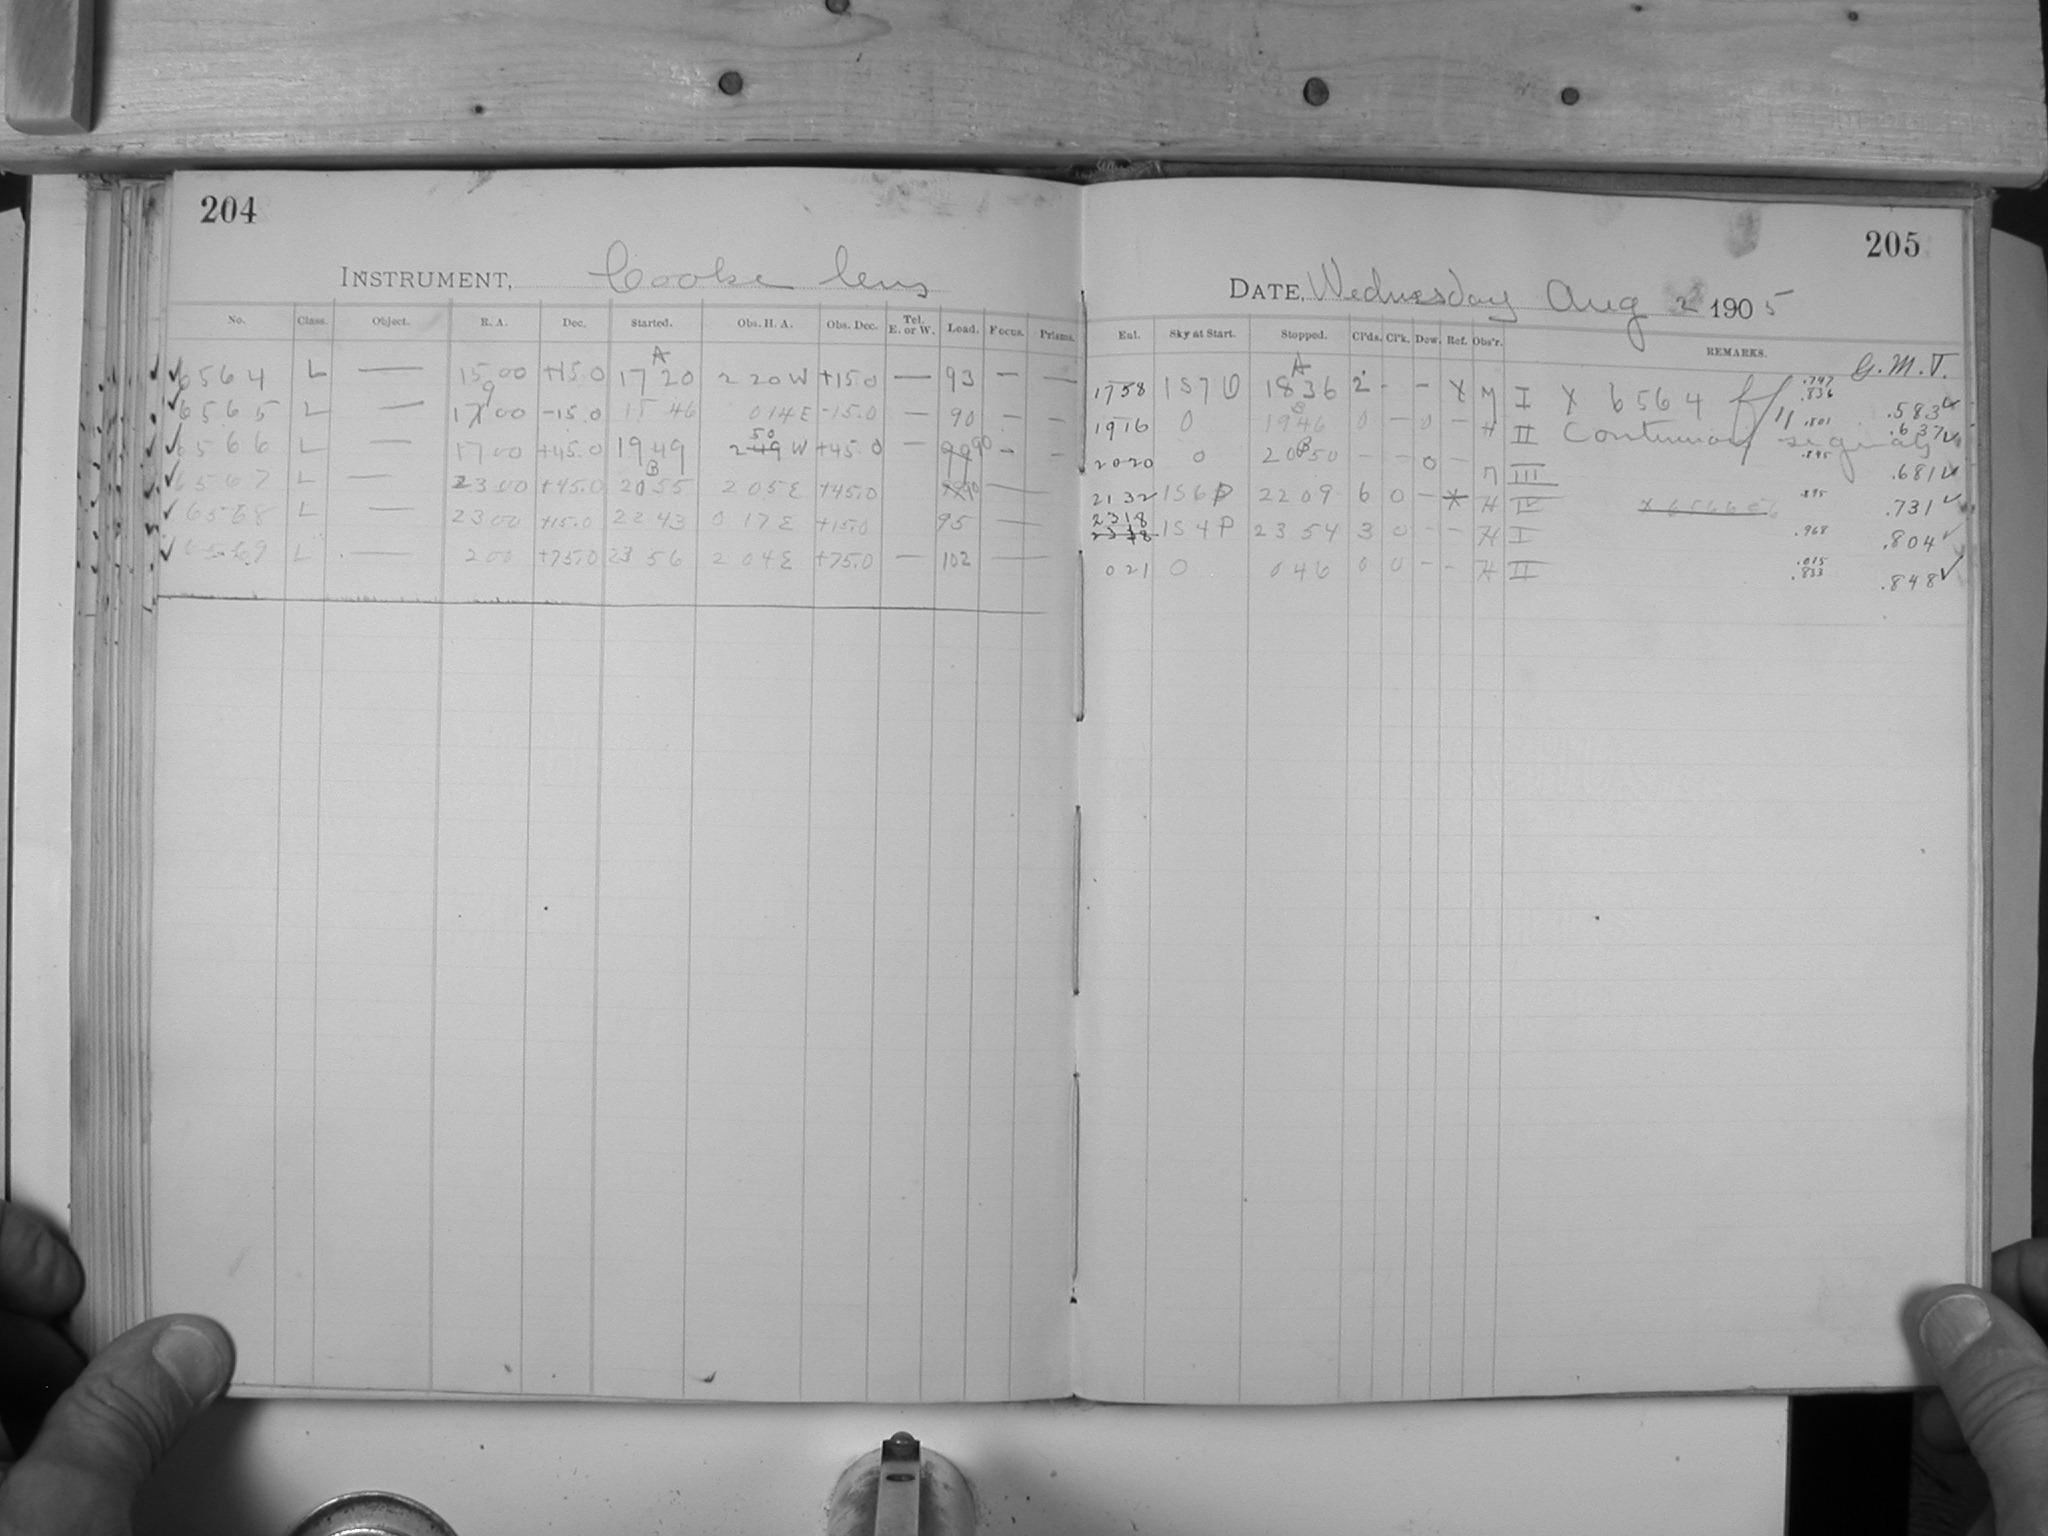 204
INSTRUMENT, Cooke lens
No. Class. Object. R. A. Dec. Started. Obs. H. A. Obs. Dec. Tel. E. or W. Load. Focus. Prisms.
A
6564 L — 15 00 +15.0 17 20 2 20 W +15.0 — 93 — —
9
6565 L — 17 00 -15.0 15 46 0 14 E -15.0 — 90 — —
50
6566 L — 17 00 +45.0 19 49 2 49 W +45.0 — 90 — —
B
6567 L — 23 00 +45.0 20 55 2 05 E +45.0 90 —
6568 L — 23 00 +15.0 22 43 0 17 E +15.0 95 —
6569 L — 2 00 +75.0 23 56 2 04 E +75.0 — 102 —
205
DATE, Wednesday Aug 2 1905
Enl. Sky at Start. Stopped. Cl'ds. Cl'k. Dew. Ref. Obs'r. REMARKS.
G.M.T.
A
17 58 1S7 0 18 36 2 - - X M I X 6564 ff .747 .836 .583
19 16 0 19 46 0 — 0 — H II Continuous signals .801 .637
B
20 20 0 20 50 - — 0 — M III .895 .681
21 32 1S6 P 22 09 6 0 — * H IV X 6566 .895 .731
23 18 1S4 P 23 54 3 0 - - H I .968 .804
0 21 0 0 46 0 0 - - H II .015 .833 .848